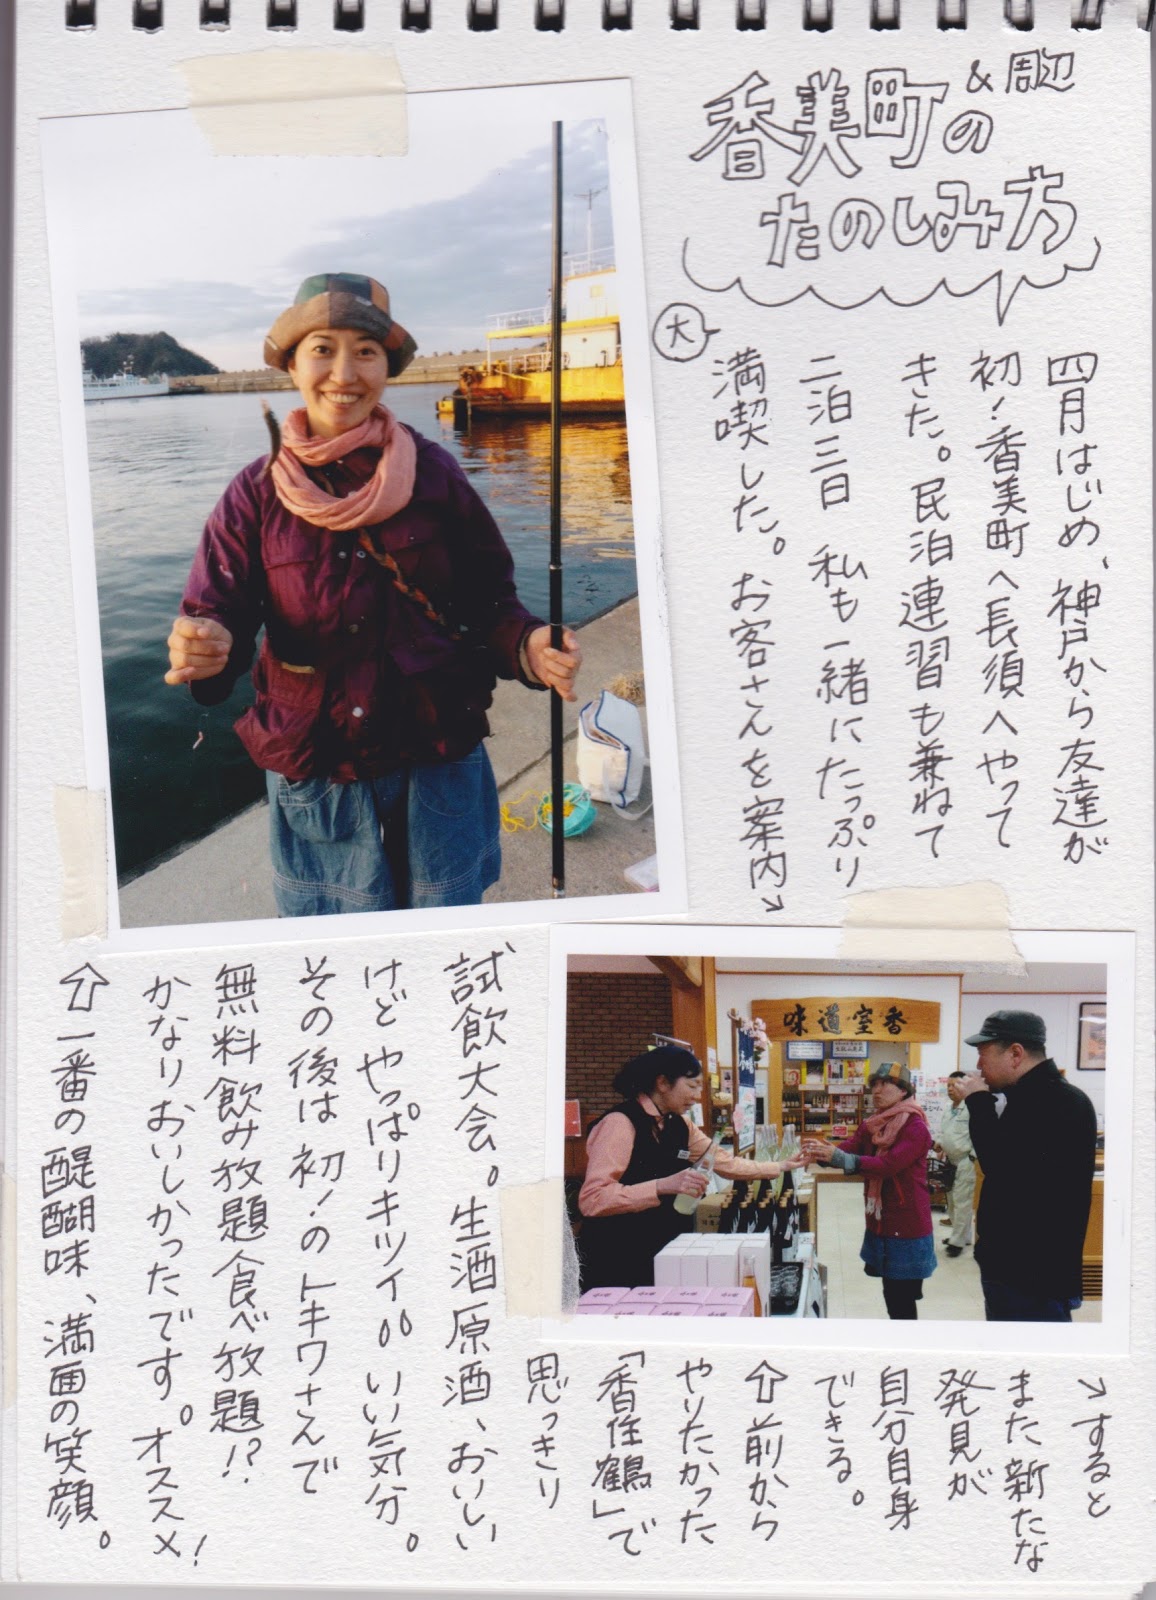 香美町&周辺の
たのしみ方
四月はじめ、神戸から友達が
初!香美町へ長須へやって
きた。民泊連習も兼ねて
二泊三日 私も一緒にたっぷり
大
満喫した。お客さんを案内↘
↘すると
また新たな
発見が
自分自身
できる。
⇧前から
やりたかった
「香住鶴」で
思っきり
試飲大会。生酒原酒、おいしい
けど やっぱりキツイ いい気分。
その後は 初!のトキワさんで
無料飲み放題食べ放題!?
かなりおいしかったです。オススメ!
⇧一番の醍醐味、満面の笑顔。
味道室香